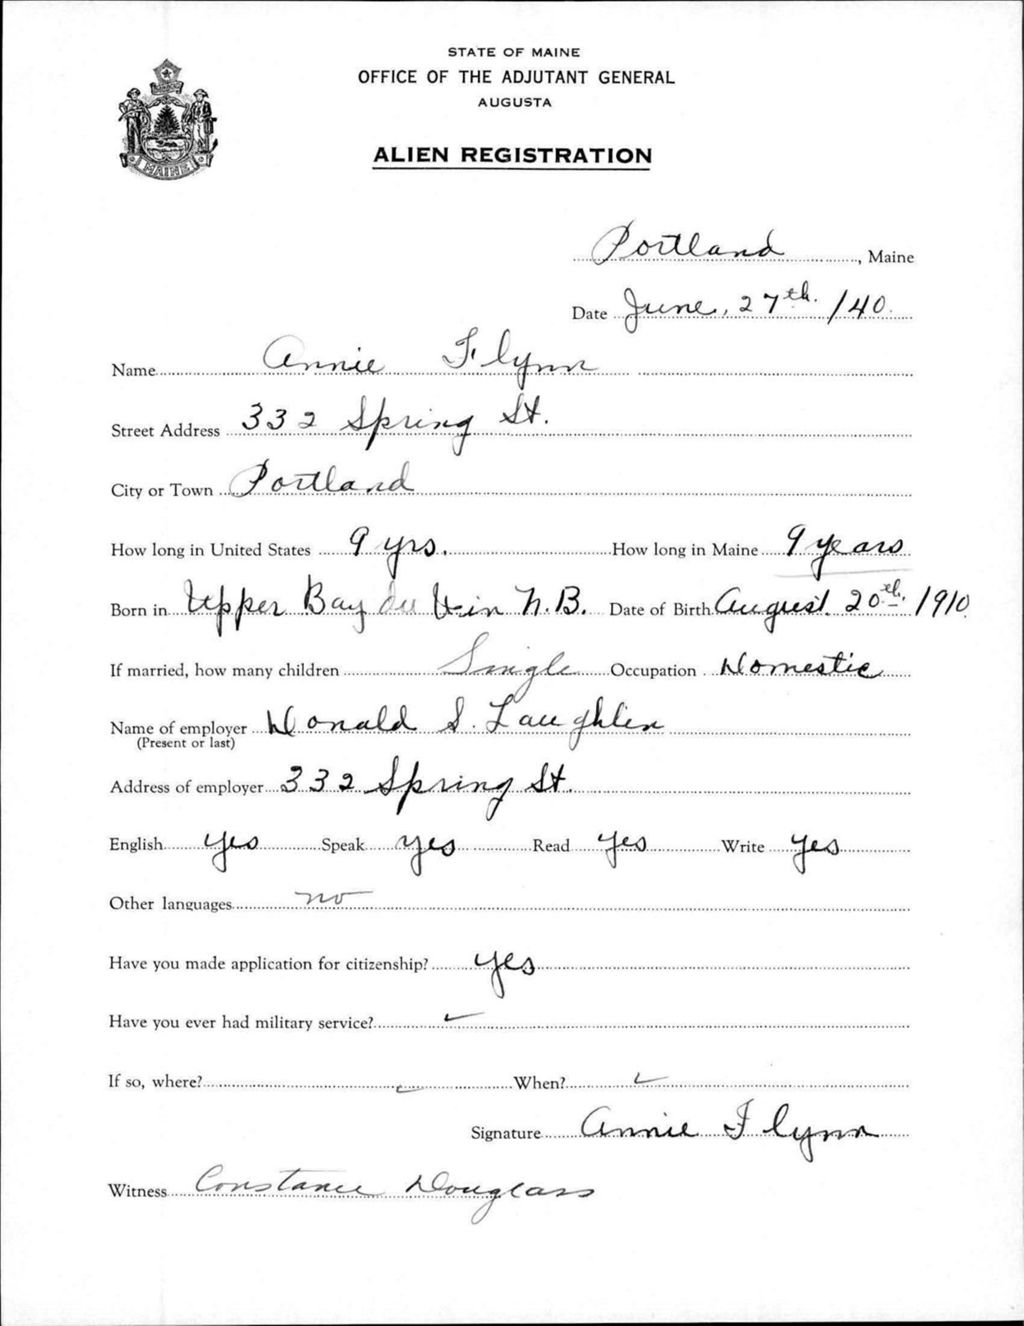 STATE OF MAINE
OFFICE OF THE ADJUTANT GENERAL
AUGUSTA
ALIEN REGISTRATION
MAINE
Portland, Maine
Date June, 27th. /40.
Name Annie Flynn
Street Address 332 Spring St.
City or Town Portland
How long in United States 9 yrs. How long in Maine 9 years
Born in Upper Bay du Vin N.B. Date of Birth August 20th. /910
If married, how many children Single Occupation Domestic
Name of employer Donald S. Laughlin
(Present or last)
Address of employer 332 Spring St.
English yes Speak yes Read yes Write yes
Other languages no
Have you made application for citizenship? yes
Have you ever had military service?
If so, where? When?
Signature Annie Flynn
Witness Constance Douglass